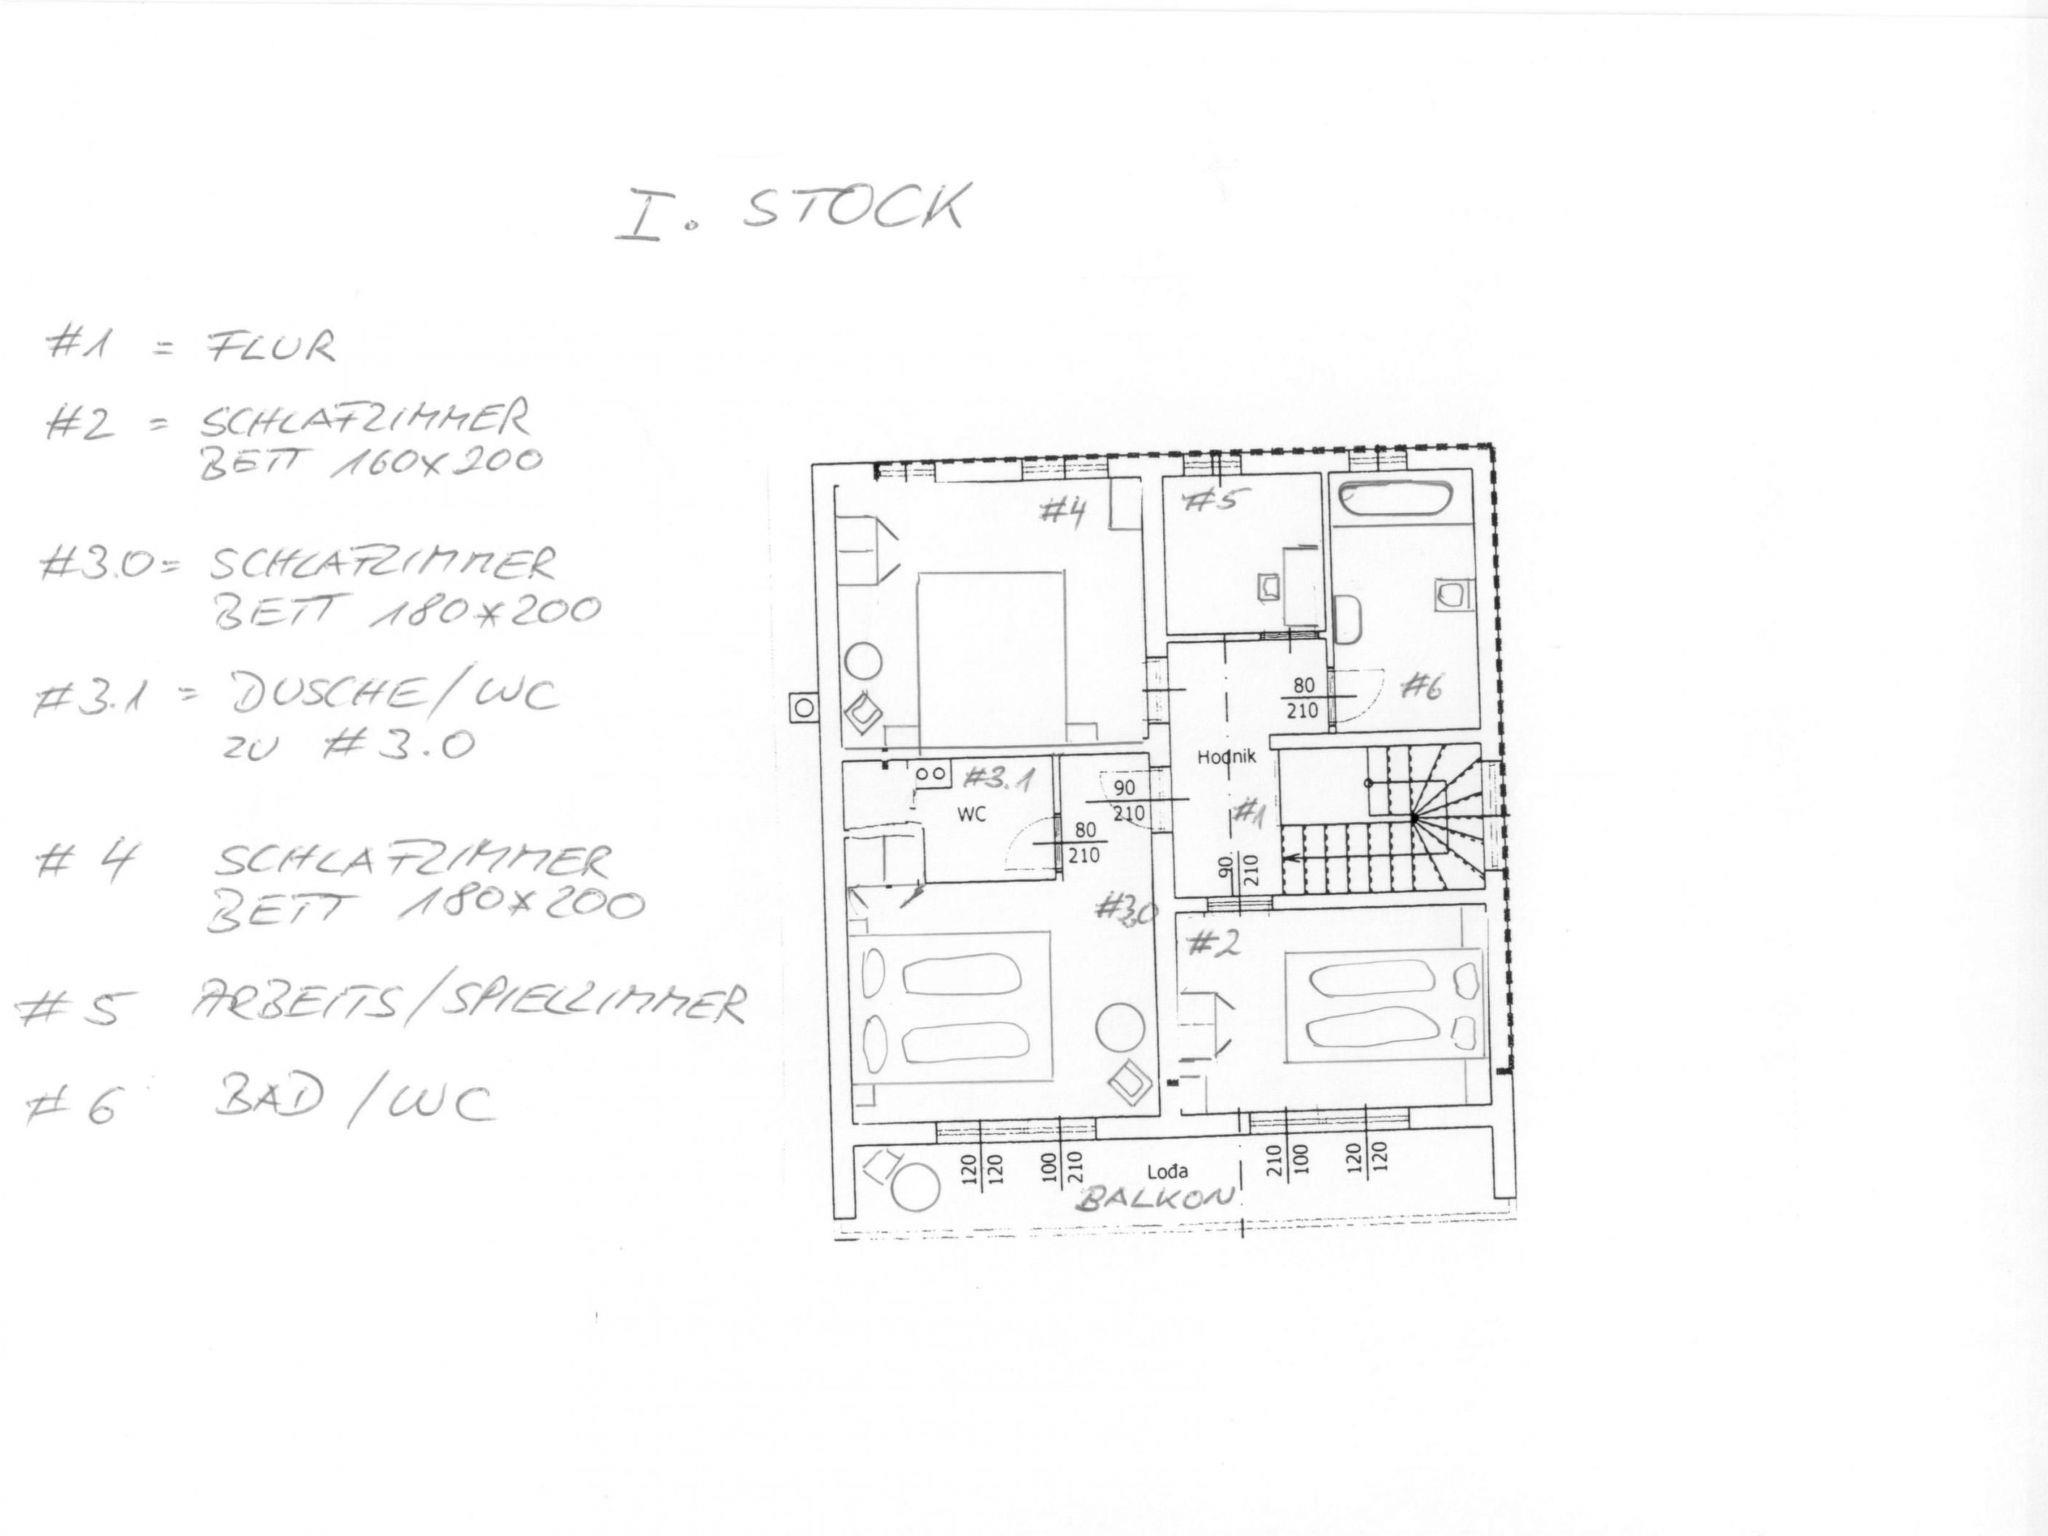 I. STOCK
#1 = FLUR
#2 = SCHLAFZIMMER
BETT 160x200
#3.0 = SCHLAFZIMMER
BETT 180x200
#3.1 = DUSCHE/WC
zu #3.0
#4 SCHLAFZIMMER
BETT 180x200
#5 ARBEITS/SPIELZIMMER
#6 BAD/WC
#4
#5
#6
80
210
Hodnik
#1
#3.1
WC
90
210
80
210
90
210
#3.0
#2
120
120
100
210
Lođa
BALKON
210
100
120
120